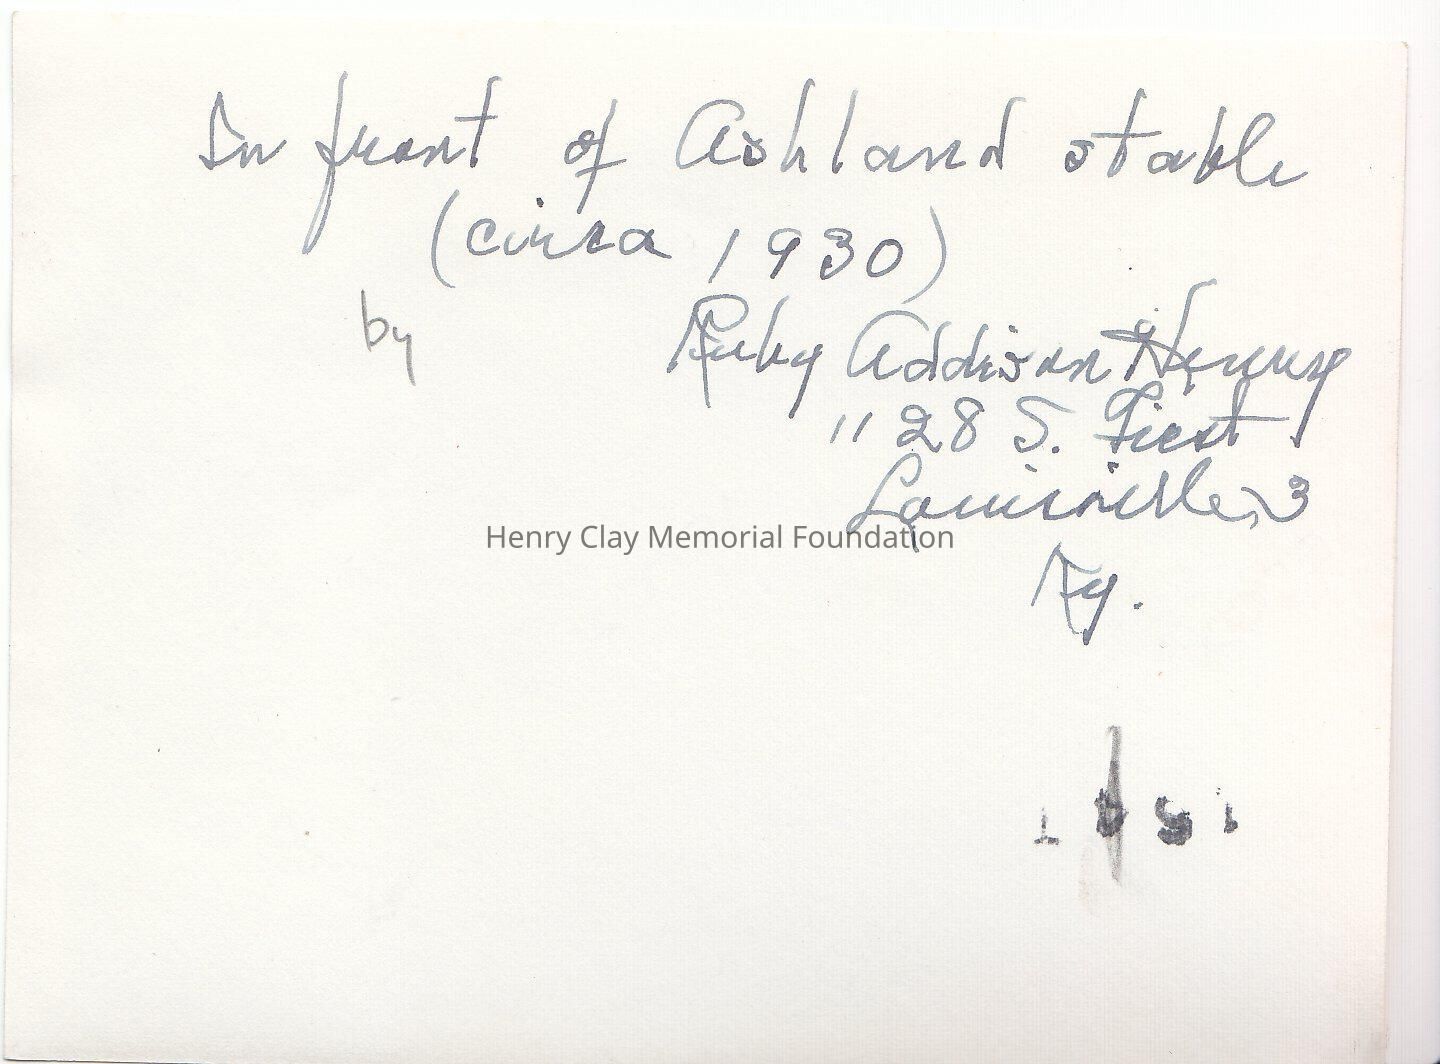 In front of Ashland stable
(circa 1930)
by Ruby Addison Henry
1128 S. First
Louisville, 3
Henry Clay Memorial Foundation
Ky.